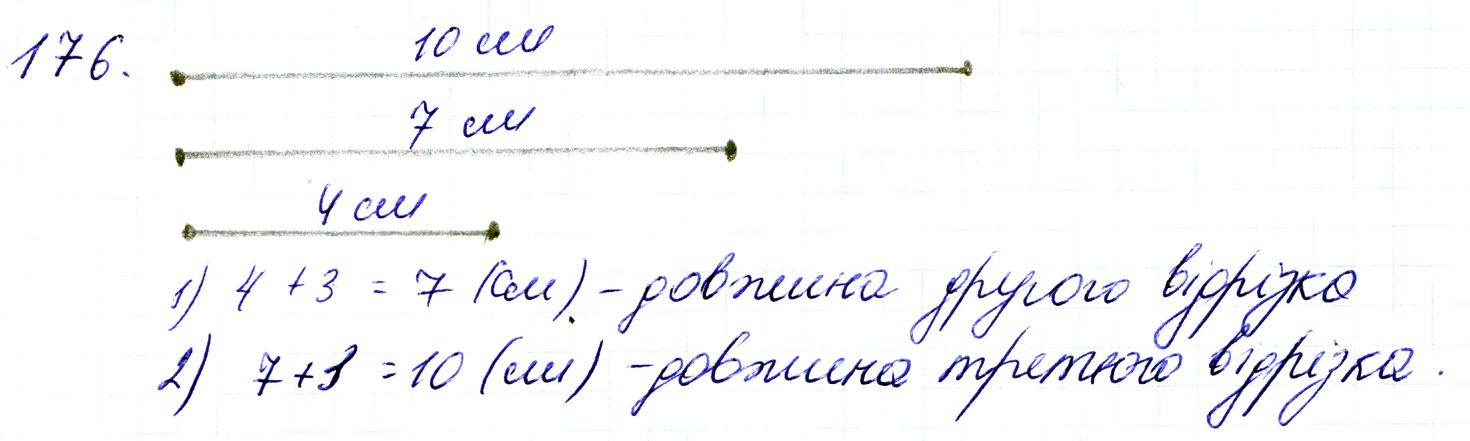 176.
10 см
7 см
4 см
1) 4 + 3 = 7 (см) - довжина другого відрізка
2) 7 + 3 = 10 (см) - довжина третього відрізка.